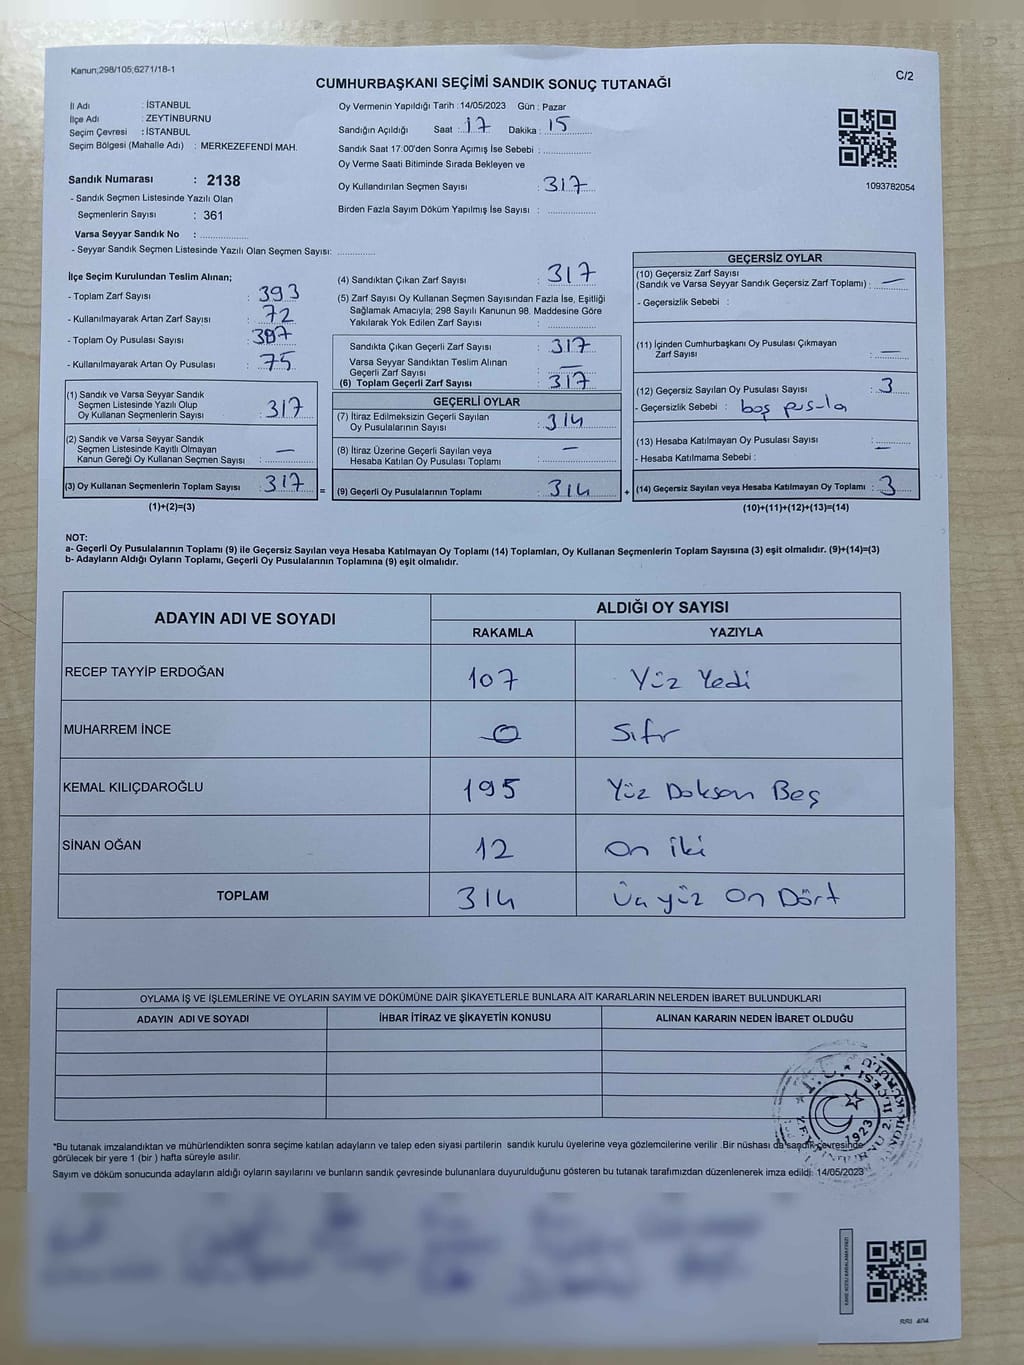 Kanun;298/105;6271/18-1
C/2
CUMHURBAŞKANI SEÇİMİ SANDIK SONUÇ TUTANAĞI
İl Adı : İSTANBUL
İlçe Adı : ZEYTİNBURNU
Seçim Çevresi : İSTANBUL
Seçim Bölgesi (Mahalle Adı) : MERKEZEFENDİ MAH.
Sandık Numarası : 2138
- Sandık Seçmen Listesinde Yazılı Olan
Seçmenlerin Sayısı : 361
Varsa Seyyar Sandık No :
- Seyyar Sandık Seçmen Listesinde Yazılı Olan Seçmen Sayısı:
Oy Vermenin Yapıldığı Tarih : 14/05/2023 Gün : Pazar
Sandığın Açıldığı Saat : 17 Dakika : 15
Sandık Saat 17:00'den Sonra Açımış İse Sebebi :
Oy Verme Saati Bitiminde Sırada Bekleyen ve
Oy Kullandırılan Seçmen Sayısı : 317
Birden Fazla Sayım Döküm Yapılmış İse Sayısı :
1093782054
İlçe Seçim Kurulundan Teslim Alınan;
- Toplam Zarf Sayısı : 393
- Kullanılmayarak Artan Zarf Sayısı : 72
- Toplam Oy Pusulası Sayısı :
- Kullanılmayarak Artan Oy Pusulası : 75
(1) Sandık ve Varsa Seyyar Sandık
Seçmen Listesinde Yazılı Olup
Oy Kullanan Seçmenlerin Sayısı : 317
(2) Sandık ve Varsa Seyyar Sandık
Seçmen Listesinde Kayıtlı Olmayan
Kanun Gereği Oy Kullanan Seçmen Sayısı : —
(3) Oy Kullanan Seçmenlerin Toplam Sayısı : 317
(1)+(2)=(3)
=
(4) Sandıktan Çıkan Zarf Sayısı : 317
(5) Zarf Sayısı Oy Kullanan Seçmen Sayısından Fazla İse, Eşitliği
Sağlamak Amacıyla; 298 Sayılı Kanunun 98. Maddesine Göre
Yakılarak Yok Edilen Zarf Sayısı :
Sandıkta Çıkan Geçerli Zarf Sayısı : 317
Varsa Seyyar Sandıktan Teslim Alınan
Geçerli Zarf Sayısı : —
(6) Toplam Geçerli Zarf Sayısı : 317
GEÇERLİ OYLAR
(7) İtiraz Edilmeksizin Geçerli Sayılan
Oy Pusulalarının Sayısı : 314
(8) İtiraz Üzerine Geçerli Sayılan veya
Hesaba Katılan Oy Pusulası Toplamı : —
(9) Geçerli Oy Pusulalarının Toplamı : 314
+
GEÇERSİZ OYLAR
(10) Geçersiz Zarf Sayısı
(Sandık ve Varsa Seyyar Sandık Geçersiz Zarf Toplamı) : —
- Geçersizlik Sebebi :
(11) İçinden Cumhurbaşkanı Oy Pusulası Çıkmayan
Zarf Sayısı : —
(12) Geçersiz Sayılan Oy Pusulası Sayısı : 3
- Geçersizlik Sebebi : boş pusula
(13) Hesaba Katılmayan Oy Pusulası Sayısı : —
- Hesaba Katılmama Sebebi :
(14) Geçersiz Sayılan veya Hesaba Katılmayan Oy Toplamı : 3
(10)+(11)+(12)+(13)=(14)
NOT:
a- Geçerli Oy Pusulalarının Toplamı (9) ile Geçersiz Sayılan veya Hesaba Katılmayan Oy Toplamı (14) Toplamları, Oy Kullanan Seçmenlerin Toplam Sayısına (3) eşit olmalıdır. (9)+(14)=(3)
b- Adayların Aldığı Oyların Toplamı, Geçerli Oy Pusulalarının Toplamına (9) eşit olmalıdır.
ADAYIN ADI VE SOYADI
ALDIĞI OY SAYISI
RAKAMLA YAZIYLA
RECEP TAYYİP ERDOĞAN 107 Yüz Yedi
MUHARREM İNCE 0 Sıfır
KEMAL KILIÇDAROĞLU 195 Yüz Doksan Beş
SİNAN OĞAN 12 On iki
TOPLAM 314 Üç yüz On Dört
OYLAMA İŞ VE İŞLEMLERİNE VE OYLARIN SAYIM VE DÖKÜMÜNE DAİR ŞİKAYETLERLE BUNLARA AİT KARARLARIN NELERDEN İBARET BULUNDUKLARI
ADAYIN ADI VE SOYADI İHBAR İTİRAZ VE ŞİKAYETİN KONUSU ALINAN KARARIN NEDEN İBARET OLDUĞU
T.C.
1923
*Bu tutanak imzalandıktan ve mühürlendikten sonra seçime katılan adayların ve talep eden siyasi partilerin sandık kurulu üyelerine veya gözlemcilerine verilir. Bir nüshası da sandık çevresinde
görülecek bir yere 1 (bir ) hafta süreyle asılır.
Sayım ve döküm sonucunda adayların aldığı oyların sayılarını ve bunların sandık çevresinde bulunanlara duyurulduğunu gösteren bu tutanak tarafımızdan düzenlenerek imza edildi: 14/05/2023